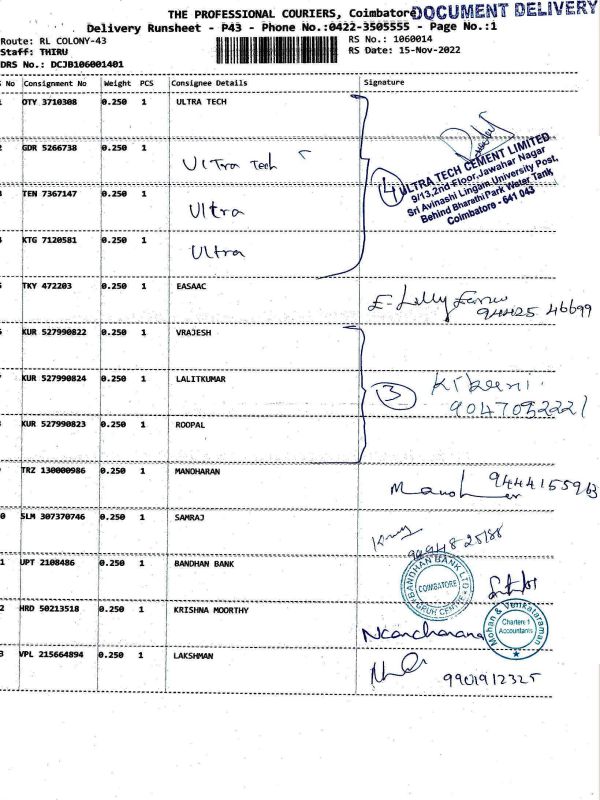 THE PROFESSIONAL COURIERS, Coimbator DOCUMENT DELIVERY
Delivery Runsheet - P43 - Phone No.:0422-3505555 - Page No.:1
Route: RL COLONY-43 RS No.: 1060014
Staff: THIRU RS Date: 15-Nov-2022
DRS No.: DCJB106001401
No Consignment No Weight PCS Consignee Details Signature
OTY 3710308 0.250 1 ULTRA TECH
GDR 5266738 0.250 1
Ultra Tech
TEN 7367147 0.250 1
Ultra
KTG 7120581 0.250 1
Ultra
4
ULTRA TECH CEMENT LIMITED
9/13,2nd Floor,Jawahar Nagar
Sri Avinashi Lingam University Post,
Behind Bharathi Park Water Tank
Coimbatore - 641 043
TKY 472203 0.250 1 EASAAC
94425 46699
KUR 527990822 0.250 1 VRAJESH
KUR 527990824 0.250 1 LALITKUMAR
3
9047052221
KUR 527990823 0.250 1 ROOPAL
TRZ 130000986 0.250 1 MANOHARAN
9444155963
SLM 307370746 0.250 1 SAMRAJ
1 UPT 2108486 0.250 1 BANDHAN BANK
BANDHAN BANK LTD
COIMBATORE
2 HRD 50213518 0.250 1 KRISHNA MOORTHY
Mohan & Venkataraman
Accountants
3 VPL 215664894 0.250 1 LAKSHMAN
9901912325